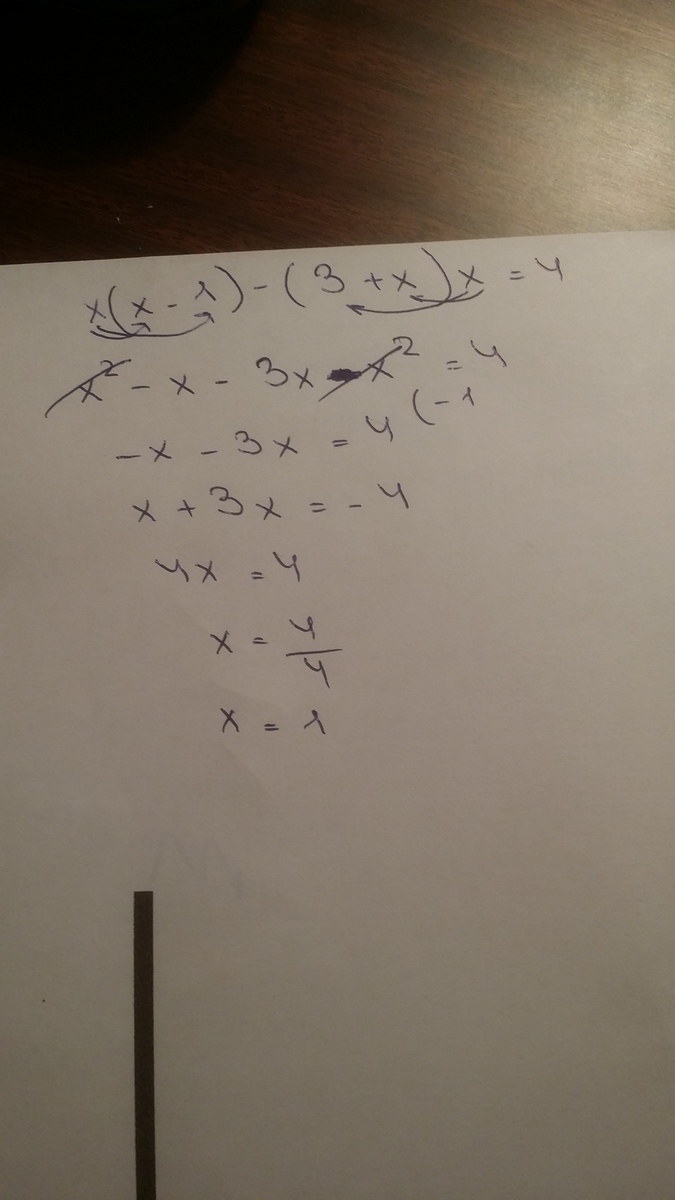 x(x - 1) - (3 + x)x = 4
x² - x - 3x - x² = 4
-x - 3x = 4 (-1
x + 3x = -4
4x = 4
x = 4/4
x = 1